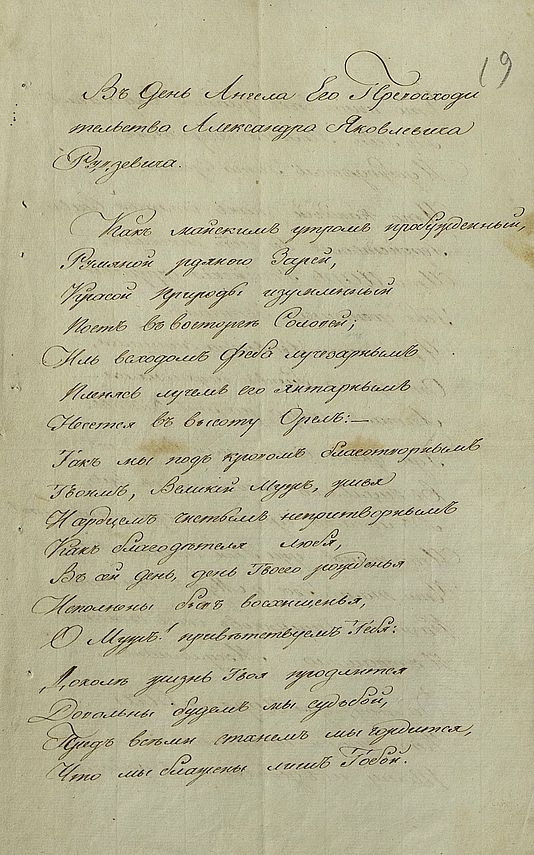 19
Въ день Ангела Его Превосходи
тельства Александра Яковлевича
Рудзевича.
Какъ майскимъ утромъ пробужденный,
Румяной рдяною Зарей,
Красой Природы изумленный
Поетъ въ восторгѣ Соловей;
Иль всходомъ Феба лучезарнымъ
Пленясь лучемъ его янтарнымъ
Несется въ высоту Орелъ:—
Такъ мы подъ кровомъ благотворнымъ
Твоимъ, Великій Мужъ, живя
И сердцемъ чистымъ непритворнымъ
Какъ благодѣтеля любя,
Въ сей день, день Твоего рожденья
Исполнены бывъ восхищенья,
О Мужъ! привѣтствуемъ Тебя:
Доколь жизнь Твоя продлится
Довольны будемъ мы судьбой,
Предъ всѣми станемъ мы гордится,
Что мы блажены лишь Тобой.